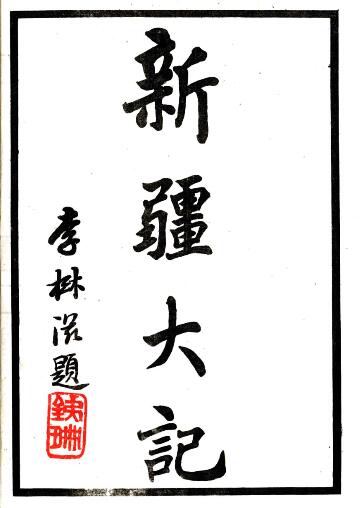 新疆大記
李林滋題